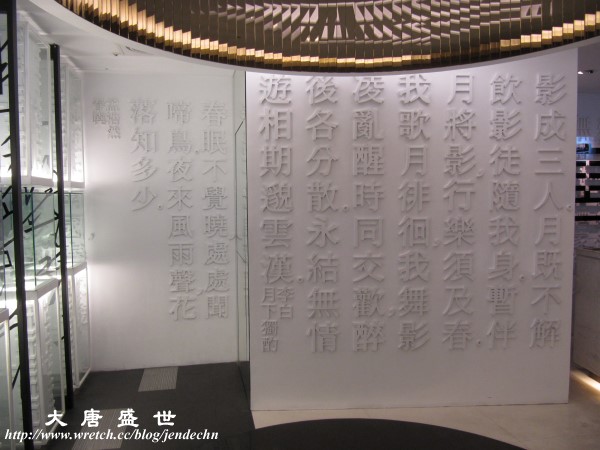 影成三人。月既不解
飲，影徒隨我身。暫伴
月將影，行樂須及春。
我歌月徘徊，我舞影
凌亂。醒時同交歡，醉
後各分散。永結無情
遊，相期邈雲漢。
李白
月下獨酌
春眠不覺曉，處處聞
啼鳥。夜來風雨聲，花
落知多少。
孟浩然
春曉
大唐盛世
http://www.wretch.cc/blog/jendechn